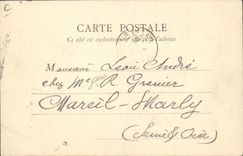 C
CARTE POSTALE
Ce côté est exclusivement réservé à l'adresse
Monsieur Léon André
chez Mr R. Grenier
Mareil-Marly
(Seine & Oise)